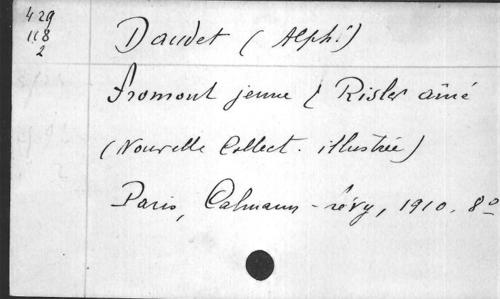 429
118
2
Daudet (Alph.)
Fromont jeune & Risler aîné
(Nouvelle Collect. illustrée)
Paris, Calmann-Lévy, 1910. 8°